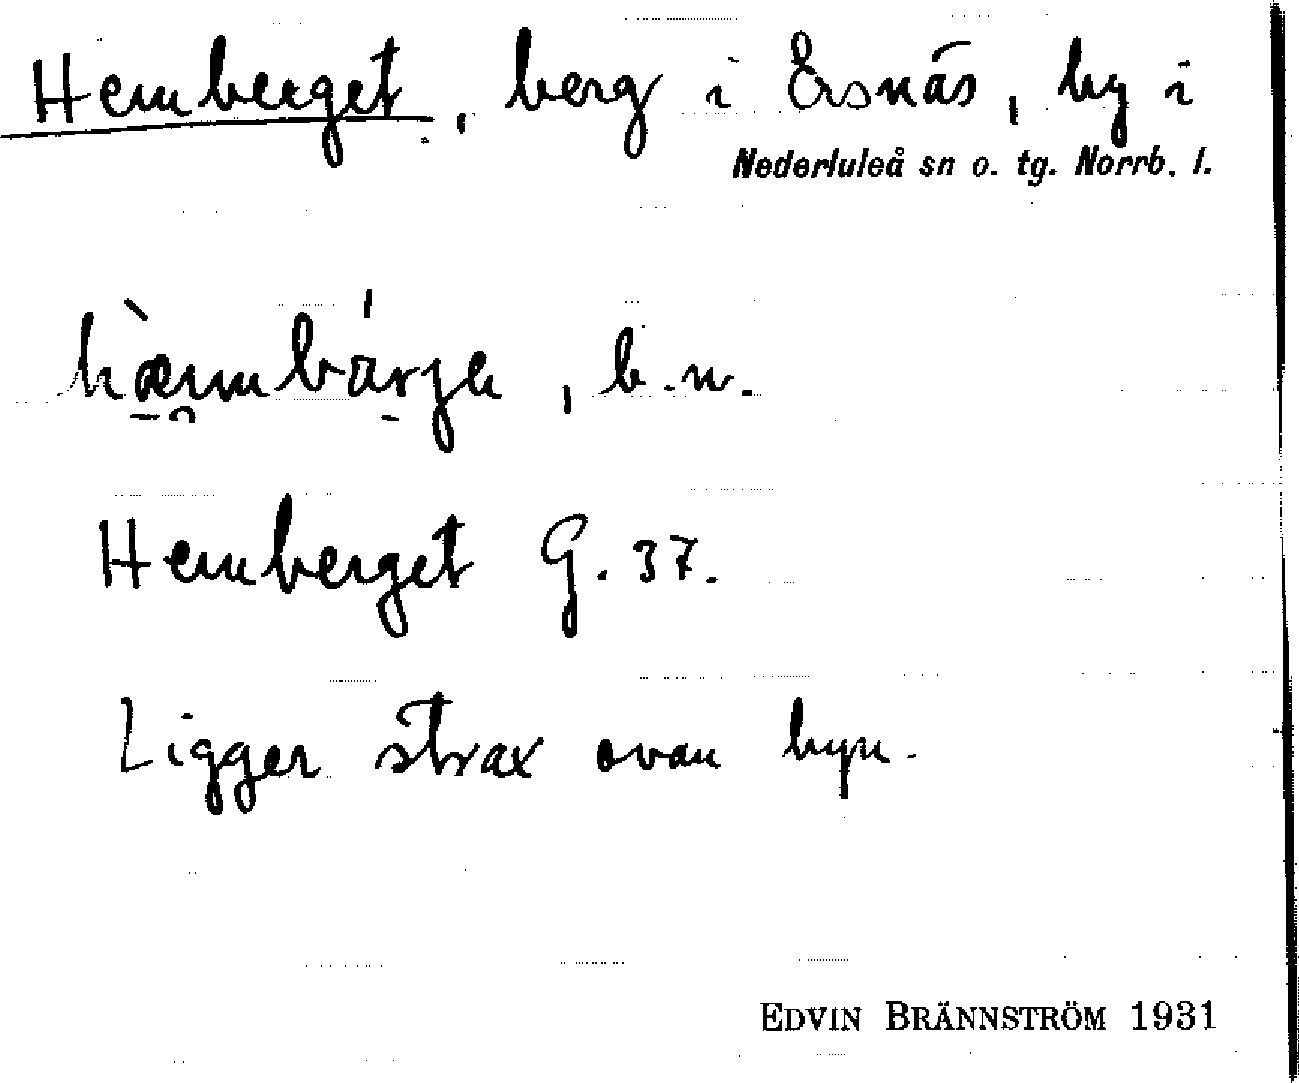 Hemberget, berg i Ersnäs, by i
Nederluleå sn o. tg. Norrb. l.
b. n.
Hemberget G. 37.
Ligger strax ovan byn.
EDVIN BRÄNNSTRÖM 1931